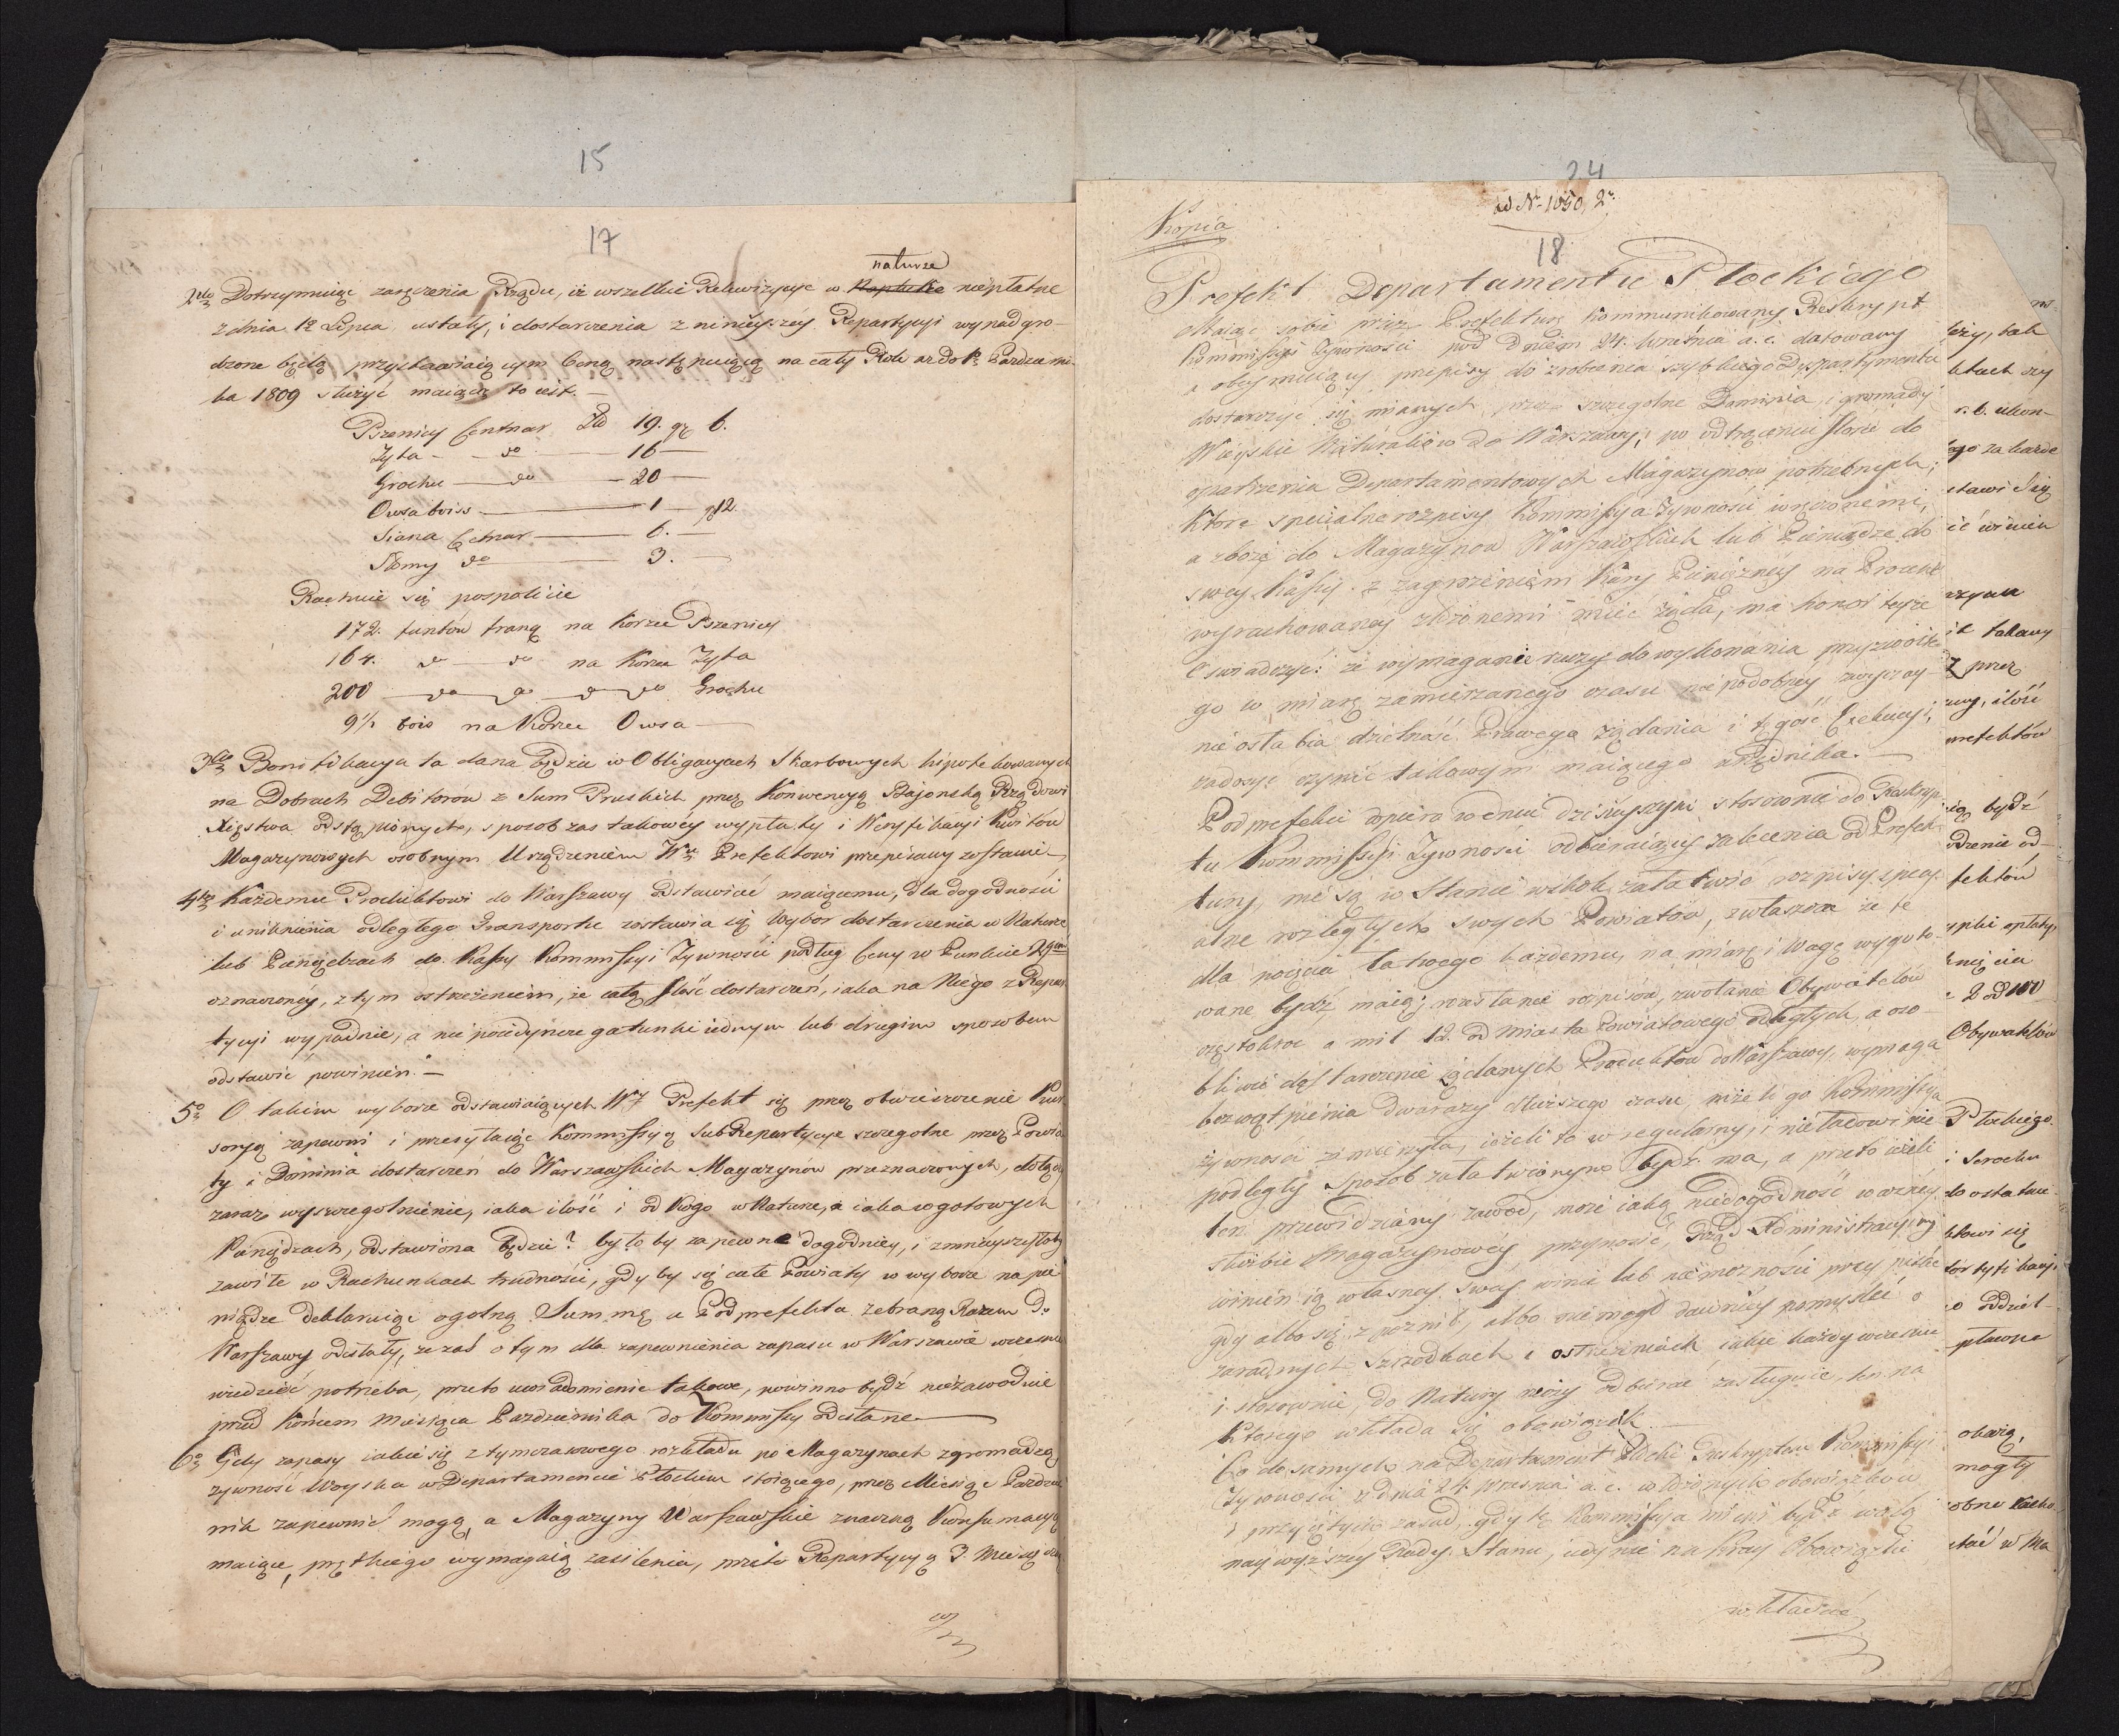 15
17
naturze
2do Dotrzymuiąc zaręczenia Rządu, iż wszelkie Rekwizycye w nieplatne
z dnia 12 Lipca ustały, i dostarczenia z ninieyszéy Repartycyi wynadgro-
dzone będą przystawiaiącym Ceną następuiącą na cały Rok aż do Pazdzierni-
ka 1809 służyć maiącą to iest. —
Pszenicy Centnar Zł 19. gr 6.
Żyta — do — 16 —
Grochu — do — 20 —
Owsa boiss — 1 — gr 12.
Siana Cetnar — 6. —
Słomy do — 3. —
Rachuie się pospolicie
172. funtów franq na Korzec Pszenicy
164. do — do na Korzec Żyta
200 — do — do — do — do Grochu
9½ bois na Korzec Owsa —
3tio Bonifikacya ta dana będzie w Obligacyach Skarbowych hipotekowanych
na Dobrach Debitorów z Sum Pruskich przez Konwencyą Bajonską Rządowi
Xięstwa odstąpionych, sposob zas takowéy wypłaty i Weryfikacyi Kwitów
Magazynowych osobnym Urządzeniem Prefektowi przepisany zostanie
4to Każdemu Produktowi do Warszawy odstawiać maiącemu, dla dogodności
i uniknienia odległego Transportu zostawia się Wybor dostarczenia w Naturze
lub Pieniędzach do Kassy Kommissyi Żywności podług Ceny w Punkcie 2gim
oznaczonéy, z tym ostrzeżeniem, że całą Ilość dostarczeń, iaka na Niego z Repar
tycyi wypadnie, a nie poiedyncze gatunki iednym lub drugim sposobem
odstawić powinien. —
5o O takim wyborze odstawiaiących Prefekt się przez otworzenie Kur
soryą zapewni i przesyłaiąc Kommissyą SubRepartycye szczegolne przez Powia
ty i Dominia dostarczeń do Warszawskich Magazynów przeznaczonych, dołączy
zaraz wyszczegolnienie, iaka ilość i od Kogo w Naturze, a iaka w gotowych
Pieniędzach, odstawiona będzie? było by zapewne dogodniey, i zmnieyszyłoby
zawiłe w Rachunkach trudności, gdy by się całe Powiaty w wyborze na pie
niądze deklaruiąc ogolną Summę u Podprefekta zebraną Razem do
Warszawy odsłały, że zaś o tym dla zapewnienia zapasu w Warszawie wcześnie
wiedzieć potrzeba, przeto uwiadomienie takowe, powinno bydź niezawodnie
przed Końcem Miesiąca Pazdziernika do Kommissyi odesłane —
6o Gdy zapasy iakie się z tymczasowego rozkładu po Magazynach zgromadzą
żywność Woyska w Departamencie Płockim stoiącego, przez Miesiąc Pazdzier
nik zapewnić mogą, a Magazyny Warszawskie znaczną Konsumacyą
maiące, prętkiego wymagaią zasilenia, przeto Repartycyą 3. Miesięczn
24
ad Nr 1050, 2r.
Kopia
18
Prefekt Departamentu Płockiego
Maiąc sobie przez Prefekturę kommunikowany Reskrypt
Kommissyi Żywności pod Dniem 24. Września a. c. datowany
a obeymuiący przepisy do zrobienia szybkiego Dyspartymentu
dostarczyć się mianych przez szczegolne Dominia i gromady
Wieyskie Naturaliów do Warszawy, po odtrąceniu Ilosci do
opatrzenia Departamentowych Magazynow potrzebnych;
Ktore specialne rozpisy Kommissya Żywności
a zboże do Magazynow Warszawskich lub Pieniądze do
swey Kassy. z zagrożeniem Kary Pieniężnéy na Procent
wyrachowaney złożonemi mieć żąda, ma honor teyże
Oswiadczyć: że wymaganie rzeczy do wykonania przyzwoite
go w miarę zamierzanego czasu niepodobney
nie osłabia dzielność Prawego żądania i tęgość Exekucyi,
zadosyc czynić takowym maiącego urzędnika. —
Podprefekci dopiero w dniu dzisieyszym stosownie do Reskryp
tu Kommissyi Żywności odbieraiący zalecenia od Prefek
tury, nie są w Stanie wskok załatwić rozpisy specy
alne rozległych swych Powiatów, zwłaszcza że te
dla poięcia łatwego każdemu, na miarę i Wagę wygoto
wane bydź maią; rozesłanie rozpisów, zwołanie Obywatelów
częstokroc o mil 12. od miasta Powiatowego odległych, a oso
bliwie dostarczenie żądanych Produktów do Warszawy, wymaga
bez wątpienia dwa razy dłuższego czasu, niżeli go Kommissya
żywności zamierzyła, ieżeli to w regularny, i nieładowi nie
podległy Sposób załatwionym bydź ma, a przeto ieżeli
ten przewidziany zawód, może iaką niedogodność w ważnéy
służbie Magazynowéy przynosić, Rząd Administracyiny
winien ią własney swey winie lub niemożności przypisać
gdy albo się zpoznił, albo nie mogł dawniéy pomysleć o
zaradnych szrzodkach i ostrzeżeniach iakie każdy wcześnie
i stosownie do Natury rzeczy odbierać zasługuie, ten na
Ktorego wkłada się obowiązek. —
Co do samych na Departament Płocki Kommissyi
Żywności z dnia 24. Wrzesnia a. c. włożonych obowiązków
i przyiętych zasad, gdy tę Kommissya mieni bydź wolą
naywyższey Rady Stanu, iedynie na Kray Obowiązki
wkładać
leży, tak
ktach czy
r. b. ukon-
ego za każde
stawić się
ić winien
it takowy
przez
ilość
prefektów
się bydź
odzenie od-
fektów
opłaty,
2 od 100
Obywatelów
Płockiego.
i Serocku
do ostatnie
ktowi się
oddziel-
pławne
obową,
mogły